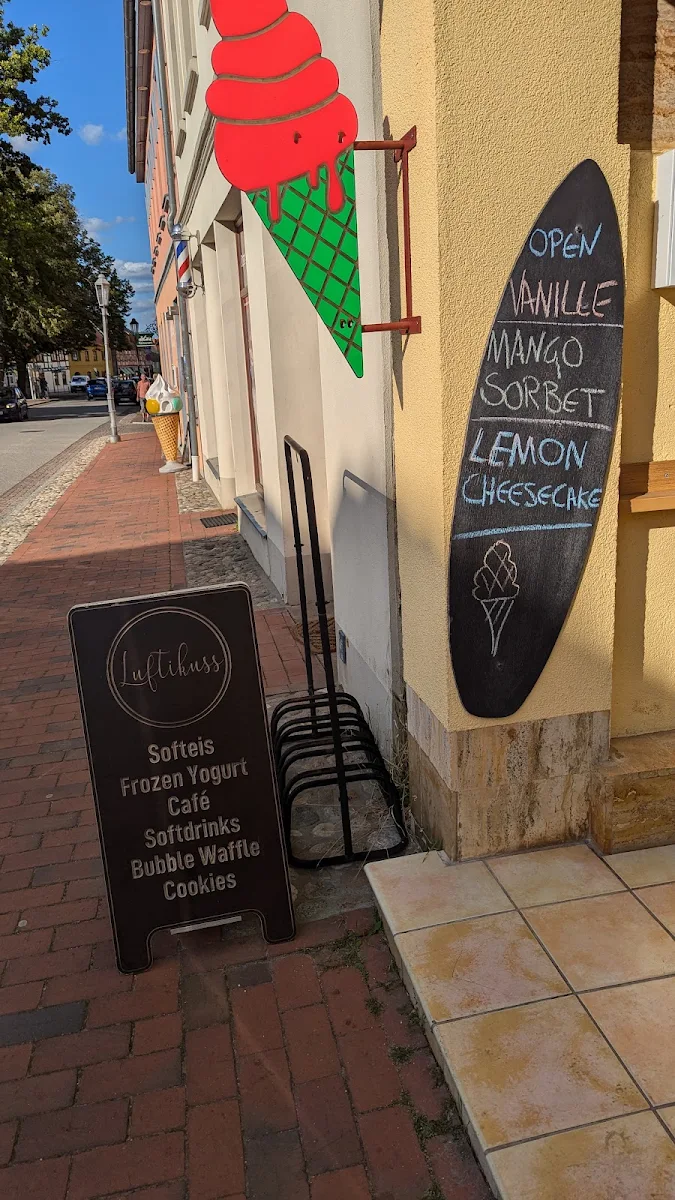 OPEN
VANILLE
MANGO
SORBET
LEMON
CHEESECAKE
Luftikuss
Softeis
Frozen Yogurt
Café
Softdrinks
Bubble Waffle
Cookies